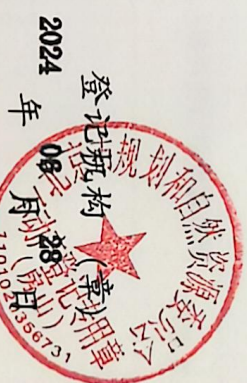 登记机构（章）
2024 年 08 月 28 日
规划和自然资源委员会
不动产登记专用章
（房山）
1101021356731